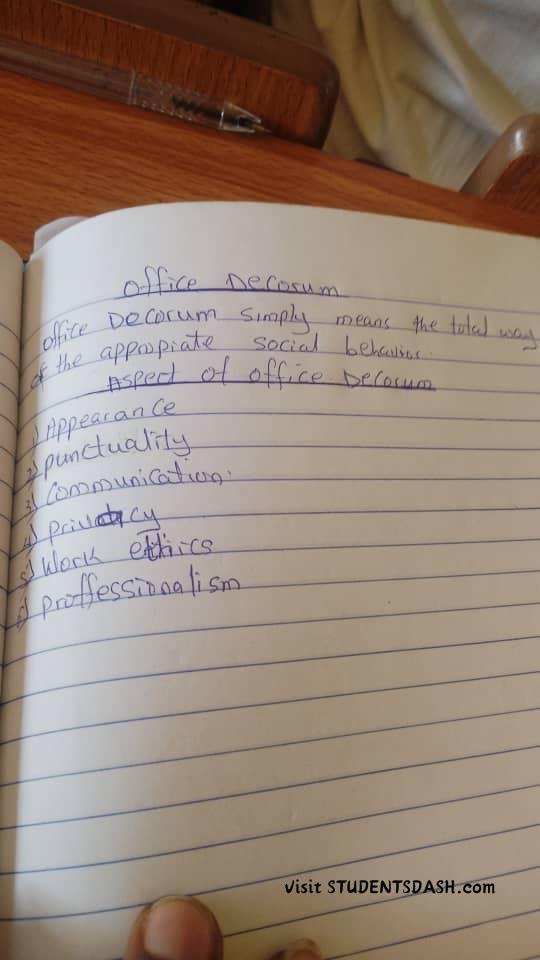 Office Decorum
Office Decorum simply means the total way
of the appropiate social behaviour.
Aspect of office Decorum
1) Appearance
2) punctuality
3) Communication.
4) privacy
5) Work ethics
6) proffessionalism
Visit STUDENTSDASH.com